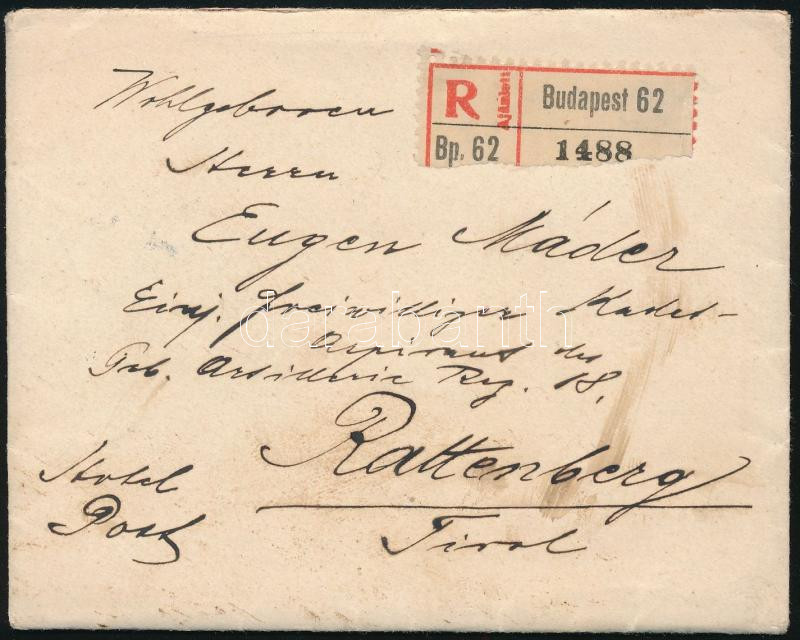 R Ajánlott Budapest 62
Bp. 62 1488
Wohlgeboren
Herrn
Eugen Máder
Einj. freiwilliger Kadet-
Aspirant des
Geb. Artillerie Reg. 18,
Rattenberg
Tirol
Hotel
Post
darabanth